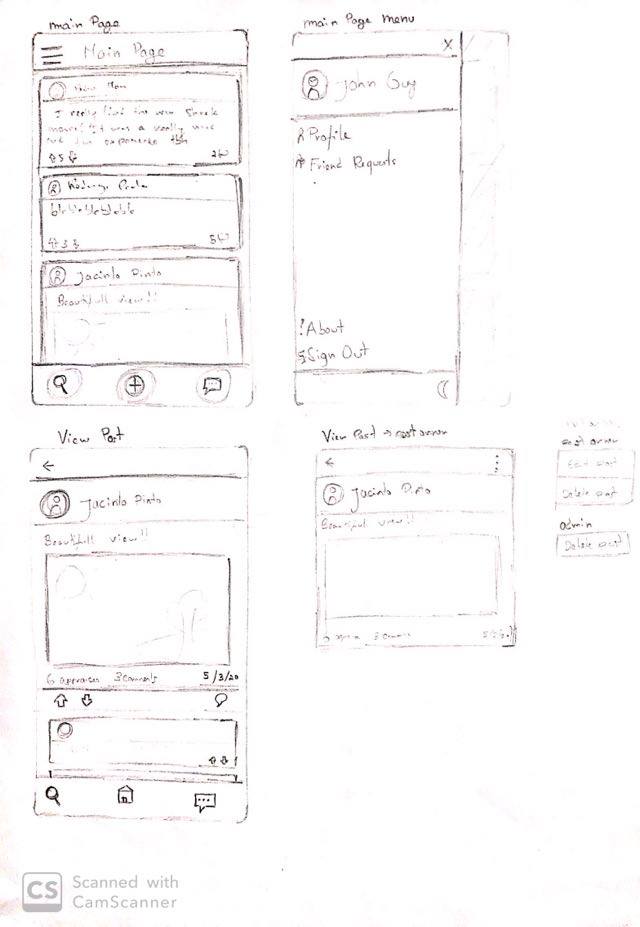 main Page
Main Page
I really
movie! It was a really nice
5
2
blablablablabla
3
5
Jacinto Pinto
Beautifull view!!
main Page menu
X
John Guy
Profile
Friend Requests
About
Sign Out
View Post
Jacinto Pinto
Beautifull view!!
6 appraises 3 comments 5/3/20
View Post → post owner
Jacinto Pinto
Beautifull view!!
3 comments 5/3/20
post owner
Edit post
Delete post
admin
Delete post
CS Scanned with
CamScanner